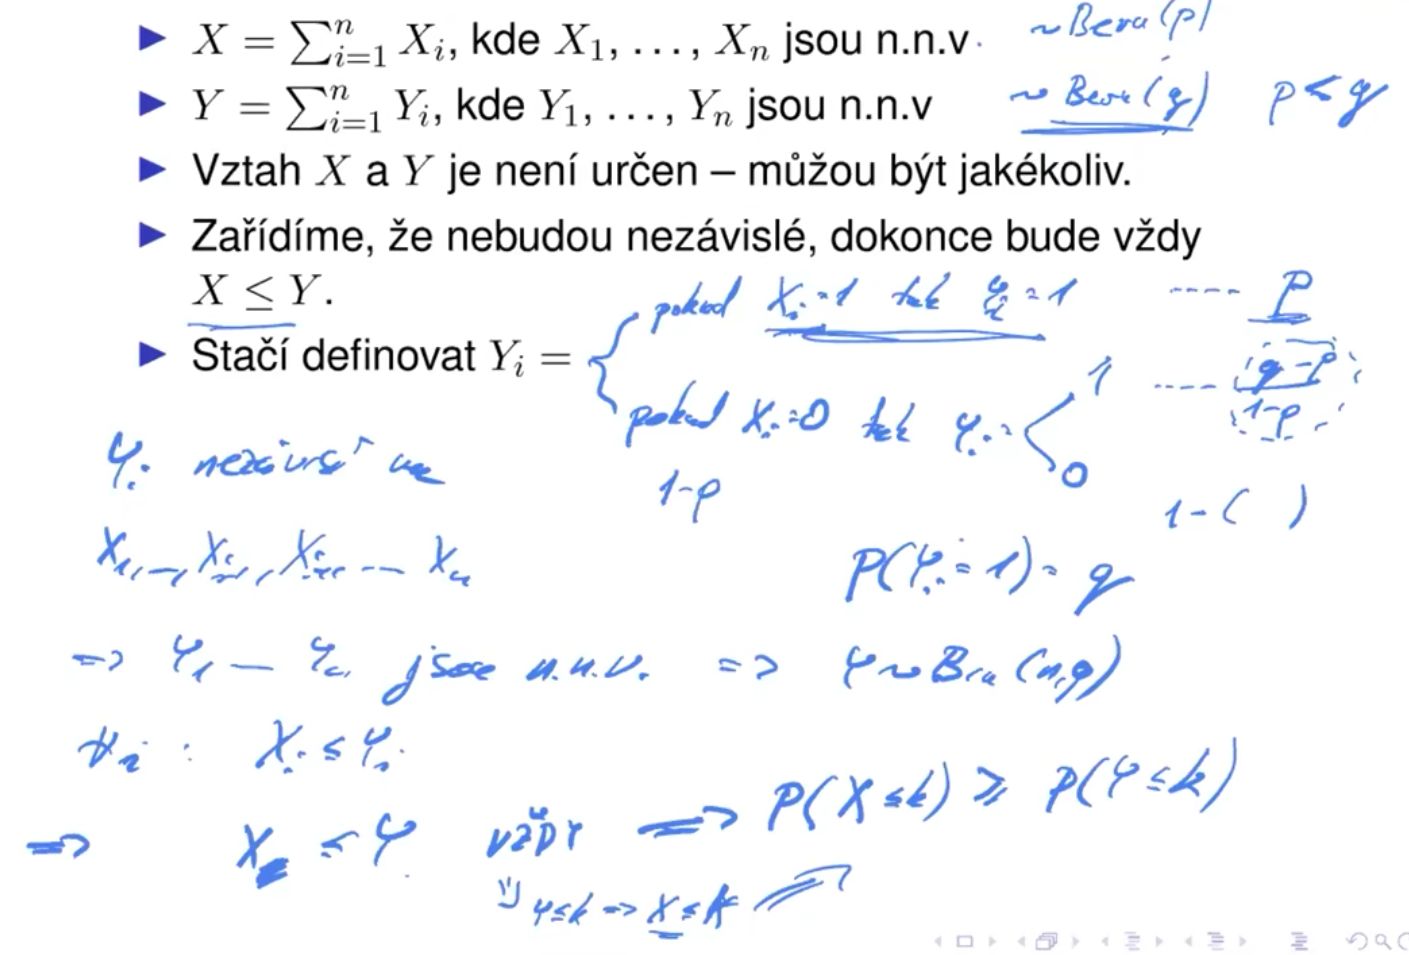 ▶ X = ∑ⁿᵢ₌₁ Xᵢ, kde X₁, …, Xₙ jsou n.n.v. ~ Bern(p)
▶ Y = ∑ⁿᵢ₌₁ Yᵢ, kde Y₁, …, Yₙ jsou n.n.v ~ Bern(q) p < q
▶ Vztah X a Y je není určen – můžou být jakékoliv.
▶ Zařídíme, že nebudou nezávislé, dokonce bude vždy
X ≤ Y.
pokud Xᵢ = 1 tak Yᵢ = 1 ---- p
▶ Stačí definovat Yᵢ = {
pokud Xᵢ = 0 tak Yᵢ = < 1 ---- (q-p)/(1-p)
0 1-( )
1-p
Yᵢ nezávisí na
X₁, …, Xᵢ₋₁, Xᵢ₊₁ … Xₙ
P(Yᵢ = 1) = q
=> Y₁ — Yₙ jsou n.n.v. => Y ~ Bin(n,q)
∀i : Xᵢ ≤ Yᵢ
=> X ≤ Y VŽDY => P(X ≤ k) ≥ P(Y ≤ k)
Y ≤ k => X ≤ k